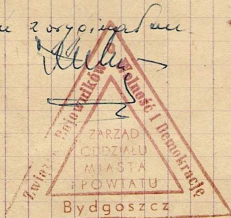 z oryginałem
Związ Bojowników o Wolność i Demokrację
ZARZĄD
ODDZIAŁU
MIASTA
I POWIATU
Bydgoszcz